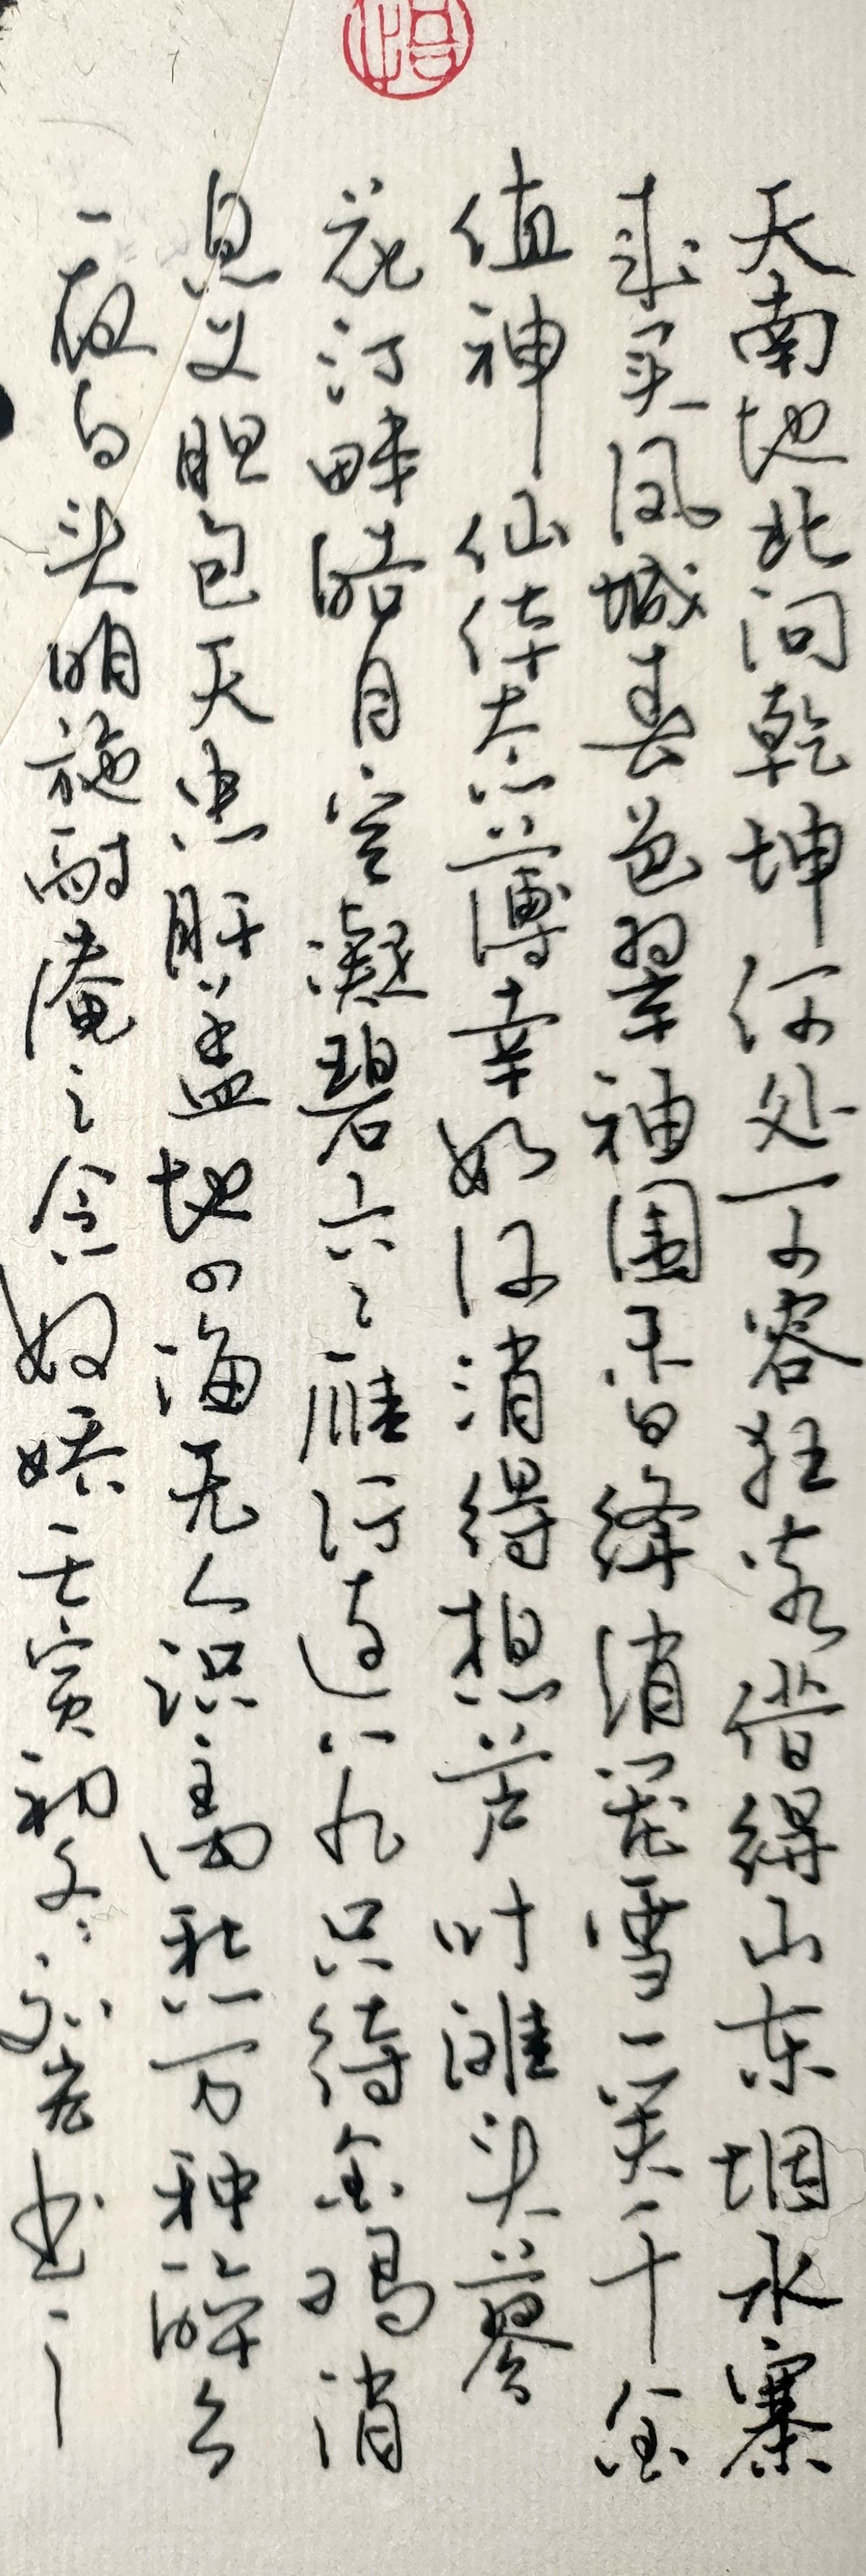 天南地北问乾坤何处可容狂客借得山东烟水寨
来买凤城春色翠袖围香绛绡笼雪一笑千金
值神仙体态薄幸如何消得想芦叶滩头蓼
花汀畔皓月空凝碧六六雁行连八九只待金鸡消
息义胆包天忠肝盖地四海无人识离愁万种醉乡
一夜白头明施耐庵之念奴娇壬寅初冬 书